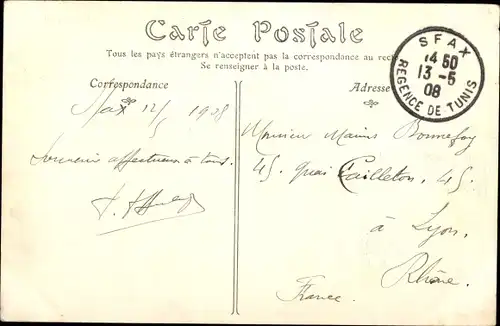 Carte Postale
Tous les pays étrangers n'acceptent pas la correspondance au rec
Se renseigner à la poste.
Correspondance
Adresse
SFAX
14 50
13 - 5
08
REGENCE DE TUNIS
Sfax 12/5 1908
Souvenir affectueux à tous.
Monsieur Bonnefoy
45, quai Tailleton, 45.
à Lyon,
Rhône.
France.